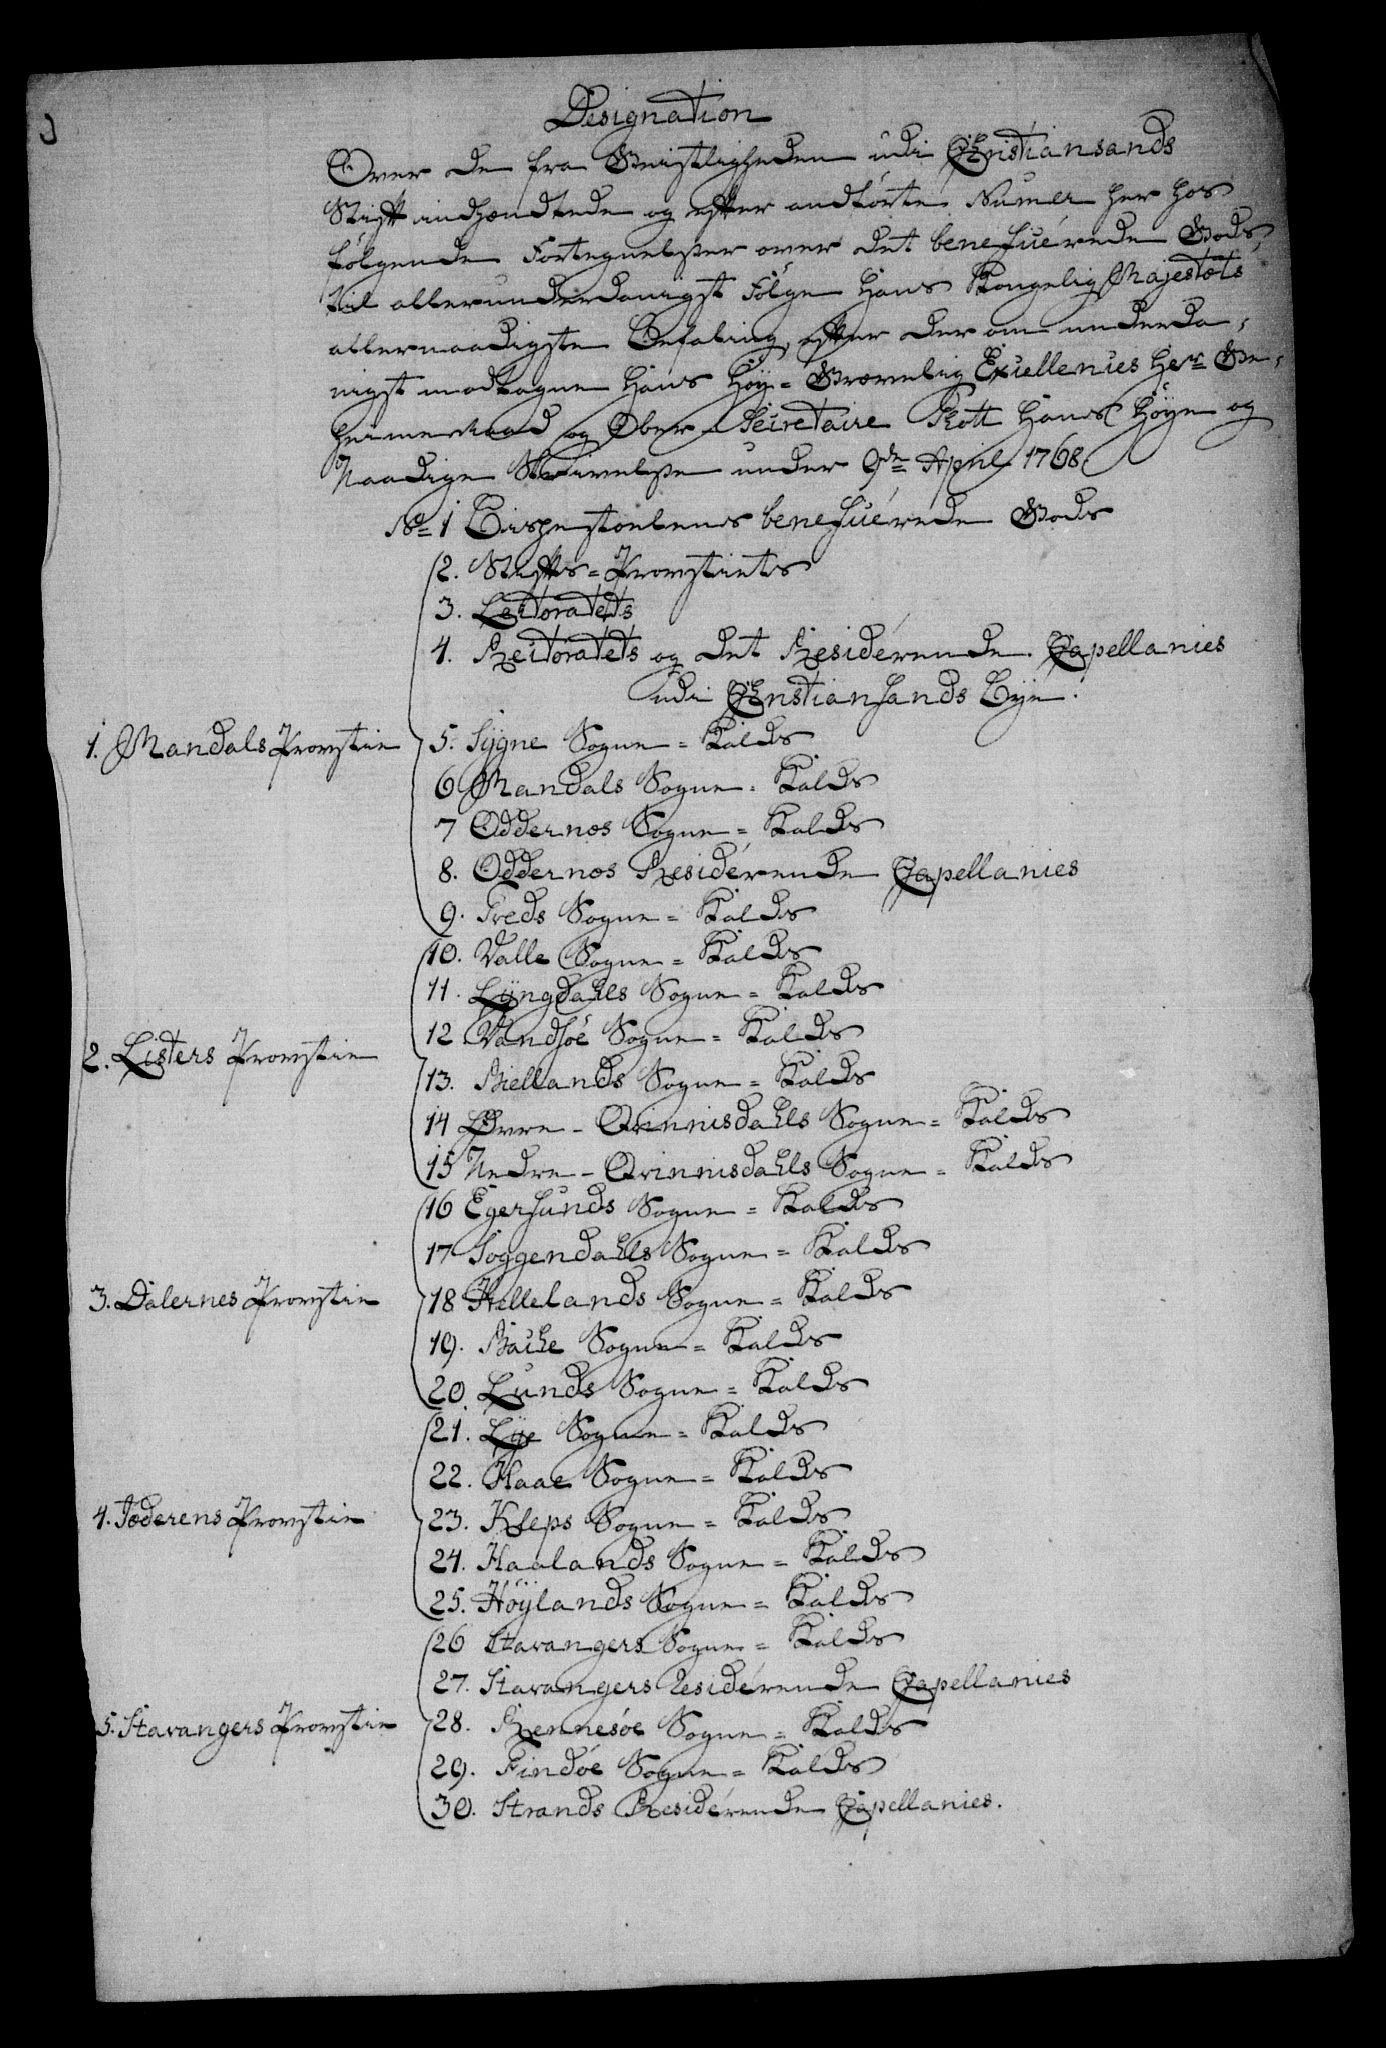 Designation
Over de fra Geistligheden udi Christiansands
Stift indhændtede og efter andførte Numer her hos
følgende Fortegnelßer over det beneficérede Gods,
til allerunderdanigst Følge Hans Kongelig Majestæts
allernaadigste Befaling, efter der om underda-
nigst modtagne Hans Høy-Grævelig Excellences Herr Ge-
heimeraad og Ober Secretaire Thott Hans Høye og
Naadige Skrivelße under 9de April 1768.
No 1 Bispestoelens beneficérede Gods
2. Stifts-Provstiets
3. Lectoratets
4. Rectoratets og det Residérende Capellanies
udi Christiansands Bye.
1. Mandals Provstie
5. Sygne Sogne-Kalds
6 Mandals Sogne-Kalds
7 Oddernes Sogne-Kalds
8. Oddernes Residérende Capellanies
9. Treds Sogne-Kalds
10. Valle Sogne-Kalds
11. Lyngdahls Sogne-Kalds
12 Vandsøe Sogne-Kalds
2. Listers Provstie
13. Biellands Sogne-Kalds
14 Øvre-Qvinnisdahls Sogne-Kalds
15 Nedre-Qvinnisdahls Sogne-Kalds
16 Egersunds Sogne-Kalds
17 Soggendahls Sogne-Kalds
3. Dalernes Provstie
18 Hellelands Sogne-Kalds
19. Bache Sogne-Kalds
20. Lunds Sogne-Kalds
21. Lye Sogne-Kalds
22. Haae Sogne-Kalds
4. Jæderens Provstie
23. Kleps Sogne-Kalds
24. Haalands Sogne-Kalds
25. Høylands Sogne-Kalds
26 Stavangers Sogne-Kalds
27. Stavangers Residérende Capellanies
5. Stavangers Provstie
28. Rennesøe Sogne-Kalds
29. Findøe Sogne-Kalds
30. Strands Residérende Capellanies.